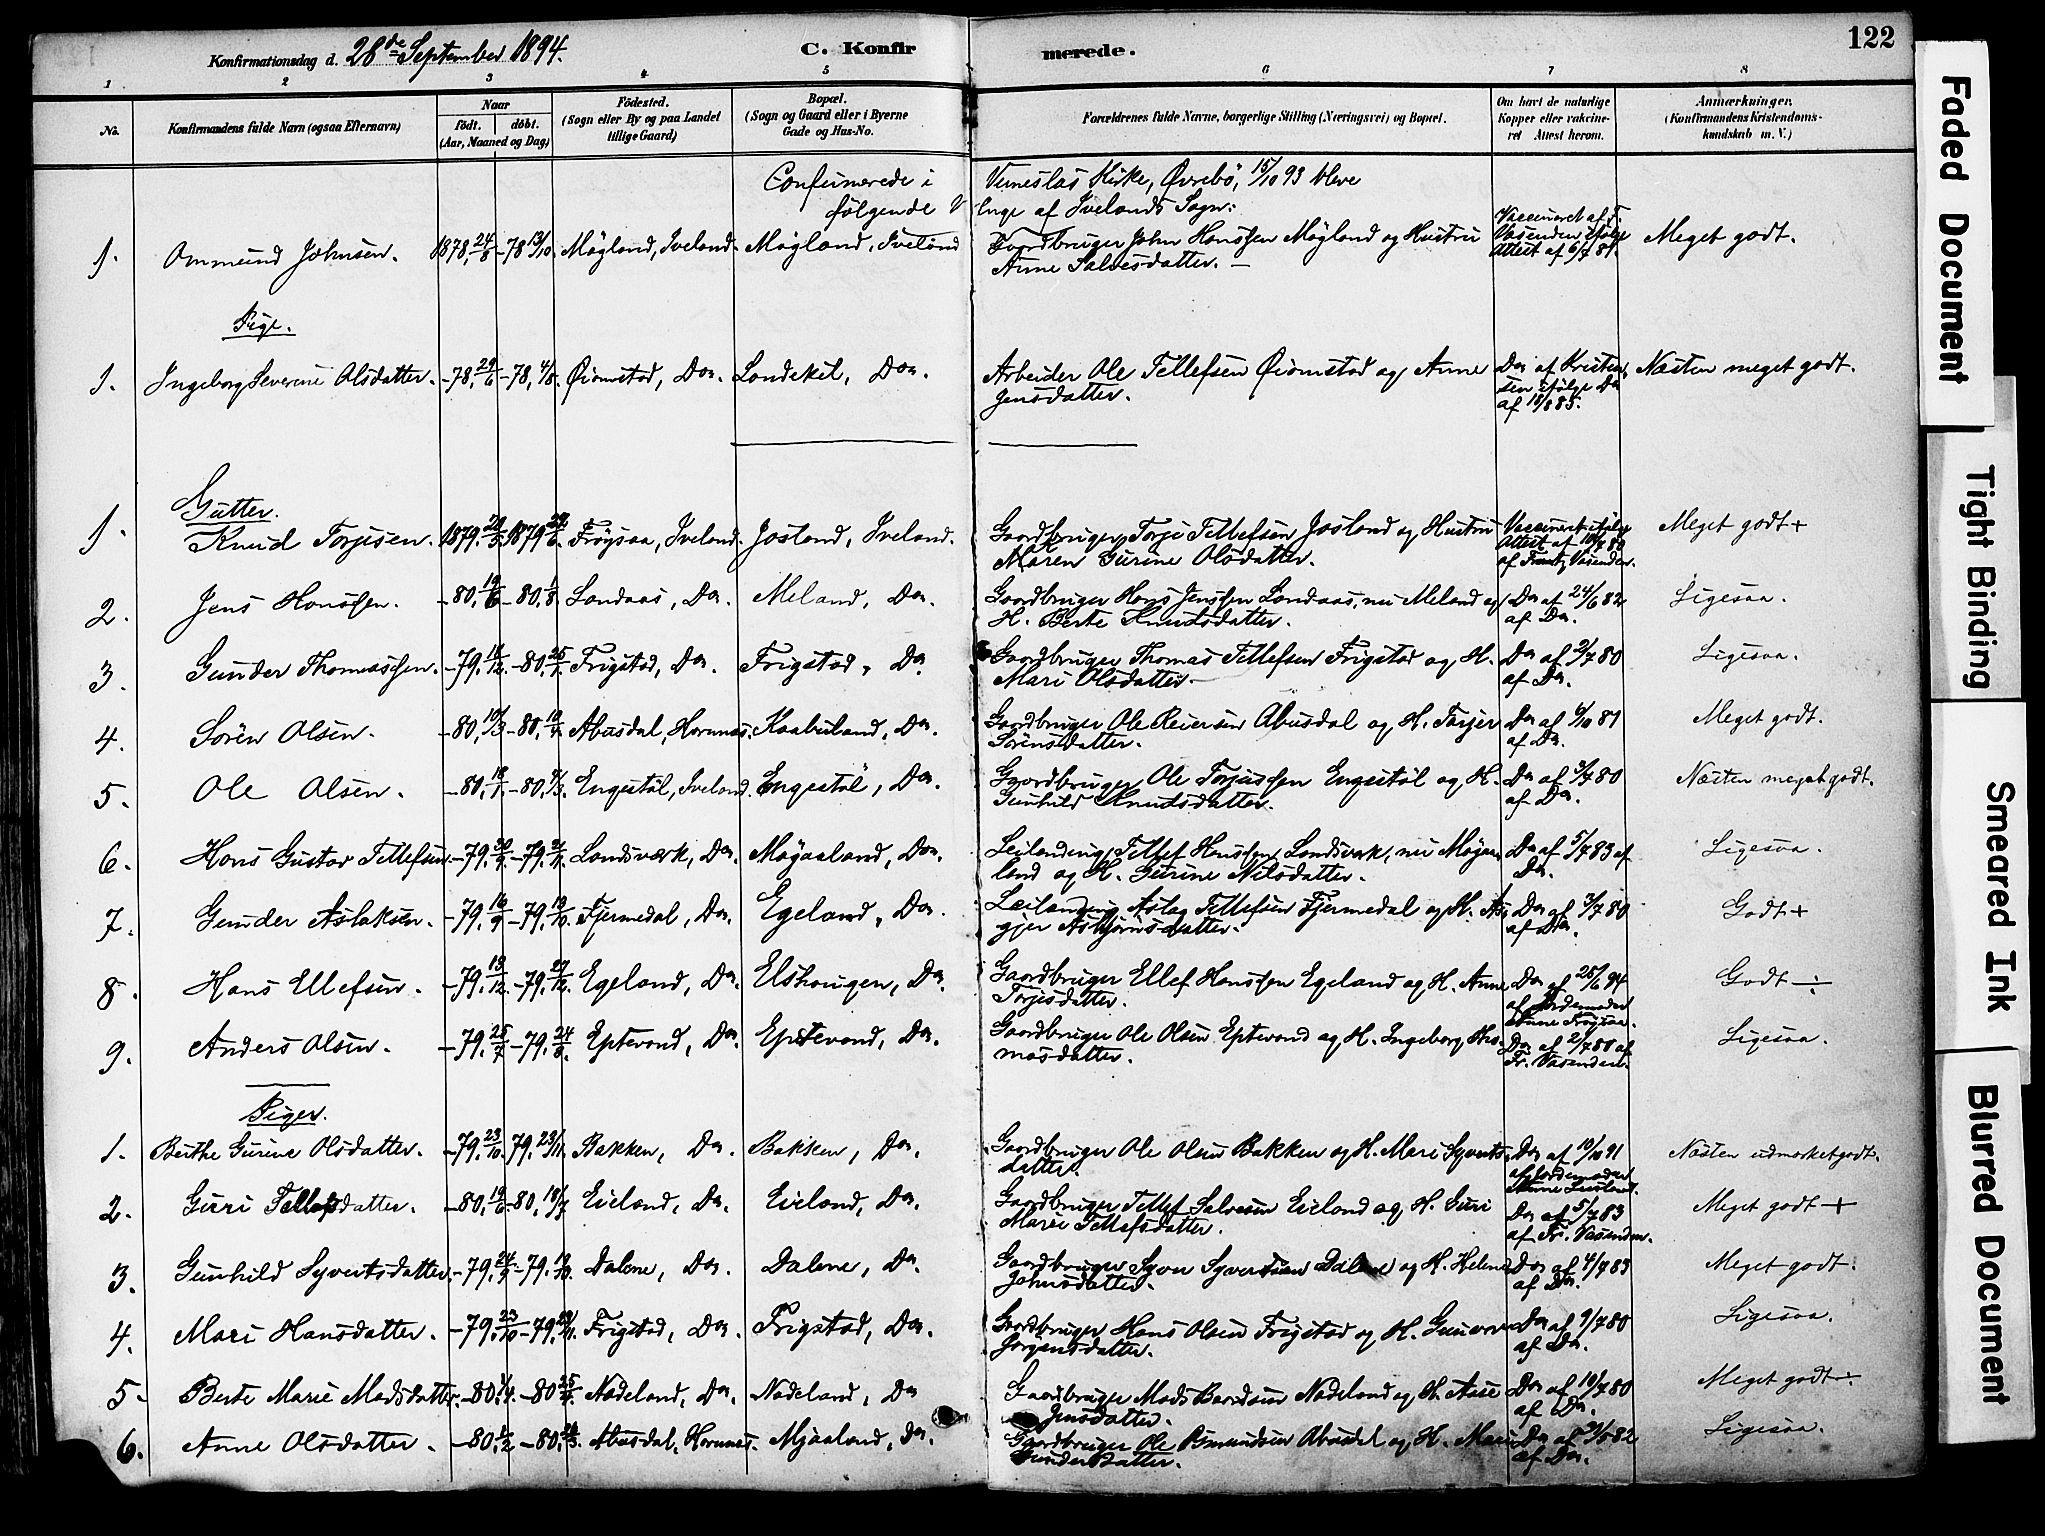 Konfirmationsdag d. 28de September 1894. C. Konfirmerede. 122
1 2 3 4 5 6 7 8
No. Konfirmandens fulde Navn (ogsaa Efternavn) Naar født. døbt. (Aar, Maaned og Dag) Fødested. (Sogn eller By og paa Landet tillige Gaard) Bopæl. (Sogn og Gaard eller i Byerne Gade og Hus-No. Forældrenes fulde Navne, borgerlige Stilling (Næringsvei) og Bopæl. Om havt de naturlige Kopper eller vakcineret Attest herom. Anmærkninger. (Konfirmandens Kristendomskundskab m. V.)
Confirmerede i Venneslas Kirke, Øvrebö, 15/10 93 bleve
følgende Unge af Ivelands Sogn:
1. Ommund Johnsen. 1878, 24/8 -78 13/10. Mögland, Iveland. Mögland, Iveland Gaardbruger John Hanssen Mögland og Hustru Vaccineret af F. Vasenden ifølge Attest af 6/7 81. Meget godt.
Anne Salvesdatter. —
Pige.
1. Ingeborg Severine Olsdatter. -78, 29/6 -78, 4/8. Öiomstad, Do. Landekil, Do. Arbeider Ole Tellefsen Öiomstad og Anne Do af Kristensen ifølge Do af 18/8 85. Næsten meget godt.
Jensdatter.
Gutter.
1. Knud Torjesen. 1879. 1879 Fröysaa, Iveland. Josland, Iveland. Gaardbruger Torje Tellefsen Josland og Hustru Vaccineret ifølge Attest af 80 af Vasenden. Meget godt +
Maren Gurine Olsdatter.
2. Jens Hanssen. -80, 19/6 -80, 1/8. Landaas, Do. Meland, Do. Gaardbruger Hans Jenssen Landaas, nu Meland og Do af 24/6 82 af Do. Ligesaa.
H. Berte Knudsdatter.
3. Gunder Thomassen. -79, 18/12. -80, 25/1. Frigstad, Do. Frigstad, Do Gaardbruger Thomas Tellefsen Frigstad og H. Do af 2/7 80 af Do. Ligesaa.
Mari Olsdatter.
4. Sören Olsen. -80, 10/3 -80, 18/4. Abusdal, Hornnes. Kaabuland, Do. Gaardbruger Ole Reiersen Abusdal og H. Torjer Do af 6/10 81 af Do. Meget godt.
Sörensdatter.
5. Ole Olsen. -80, 18/1 -80, 7/3. Engestöl, Iveland. Engestöl, Do. Gaardbruger Ole Torjussen Engestöl og H. Do af 3/7 80 af Do. Næsten meget godt.
Gunhild Knudsdatter.
6. Hans Gustav Tellefsen -79, -79, Landsværk, Do. Møgaaland, Do. Leilending Tellef Hanssen Landsværk, nu Møgaa- Do af 5/7 83 af Do. Ligesaa.
land og H. Gurine Nilsdatter.
7. Gunder Aslaksen. -79, 16/9 -79, 19/10. Fjermedal, Do. Egeland, Do. Leilending Aslag Tellefsen Fjermedal og H. As- Do af 3/7 80 af Do. Godt +
gjer Asbjörnsdatter.
8. Hans Ellefsen. -79, 13/12. -79, 27/12. Egeland, Do. Elshougen, Do. Gaardbruger Ellef Hanssen Egeland og H. Anne Do af 25/6 94 af Jordemoder Anne Fröysaa. Godt ÷
Torjesdatter.
9. Anders Olsen. -79, 25/7 -79, 24/8. Eptevand, Do. Eptevand, Do. Gaardbruger Ole Olsen Eptevand og H. Ingeborg Tho- Do af 2/7 80 af Fr. Vasenden. Ligesaa.
masdatter.
Piger.
1. Berthe Gurine Olsdatter. -79, 23/10. 79, 23/11. Bakken, Do. Bakken, Do. Gaardbruger Ole Olsen Bakken og H. Mari Syverts- Do af 10/10 91 af Jordemoder Anne Næsten udmærket godt.
datter.
2. Guri Tellefsdatter. -80, 19/6 -80, 18/7 Eieland, Do. Eieland, Do. Gaardbruger Tellef Salvesen Eieland og H. Guri Do af 5/7 83 af Fr. Vasenden. Meget godt +
Marie Tellefsdatter.
3. Gunhild Syvertsdatter. -79, 24/9 -79, 19/10. Dalene, Do. Dalene, Do. Gaardbruger Syver Syvertsen Dalene og H. Helene Do af 4/7 83 af Do. Meget godt.
Johnsdatter.
4. Mari Hansdatter. -79, 23/10 -79, Frigstad, Do. Frigstad, Do. Gaardbruger Hans Olsen Frigstad og H. Gunvor Do af 9/7 80 af Do. Ligesaa.
Jorgensdatter.
5. Berte Marie Madsdatter. -80, -80 25/4. Nødeland, Do. Nødeland, Do Gaardbruger Mads Baardsen Nødeland og H. Aase Do af 10/7 80 af Do. Meget godt ÷
Jensdatter.
6. Anne Olsdatter. -80, 1/2 -80, Abusdal, Hornnes. Mjaaland, Do. Gaardbruger Ole Asmundsen Abusdal og H. Mari Do af 82 af Do. Ligesaa.
Gundersdatter.
Faded Document
Tight Binding
Smeared Ink
Blurred Document